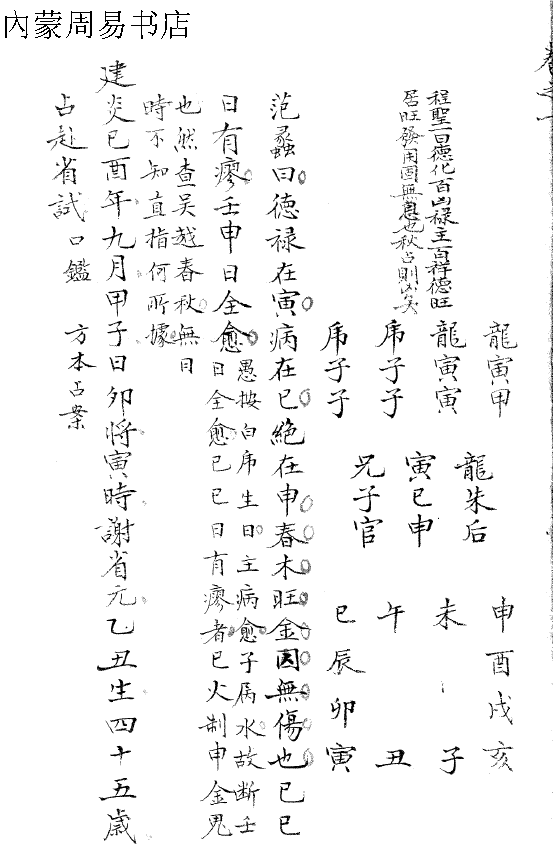 內蒙周易书店
卷之一
程聖一曰德化百凶祿主百祥德旺
居旺發用固無息也秋占則凶矣
龍寅甲
龍寅寅
虎子子
虎子子
龍朱后
寅巳申
兄子官
申酉戌亥
未 子
午 丑
巳辰卯寅
范蠡曰德祿在寅病在巳絕在申春木旺金囚無傷也己巳
日有瘳壬申日全愈愚按白虎生日主病愈子屬水故断壬
日全愈己巳日有瘳者巳火制申金鬼
也然查吳越春秋無日
時不知直指何所據
建炎己酉年九月甲子日卯將寅時謝省元乙丑生四十五歲
占赴省試 口鑑 方本占案